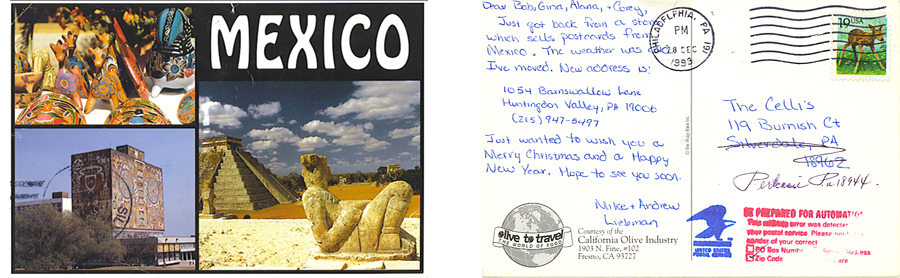 MEXICO
Dear Bob, Gina, Alana, + Corey,
Just got back from a store
which sells postcards from
Mexico. The weather was
I've moved. New address is:
1054 Barnswallow Lane
Huntingdon Valley, PA 19006
(215) 947-5497
Just wanted to wish you a
Merry Christmas and a Happy
New Year. Hope to see you soon.
Mike + Andrew
Liebman
olive to travel
THE WORLD OF FOOD
Courtesy of the
California Olive Industry
1903 N. Fine, #102
Fresno, CA 93727
PHILADELPHIA, PA 191
PM
28 DEC
1993
19 USA
The Celli's
119 Burnish Ct
Silverdale, PA
18962
Perkasie Pa 18944.
UNITED STATES
POSTAL SERVICE
BE PREPARED FOR AUTOMATI
This error was detected
your postal service Please
sender of your correct
PO Box Number Business
Zip Code